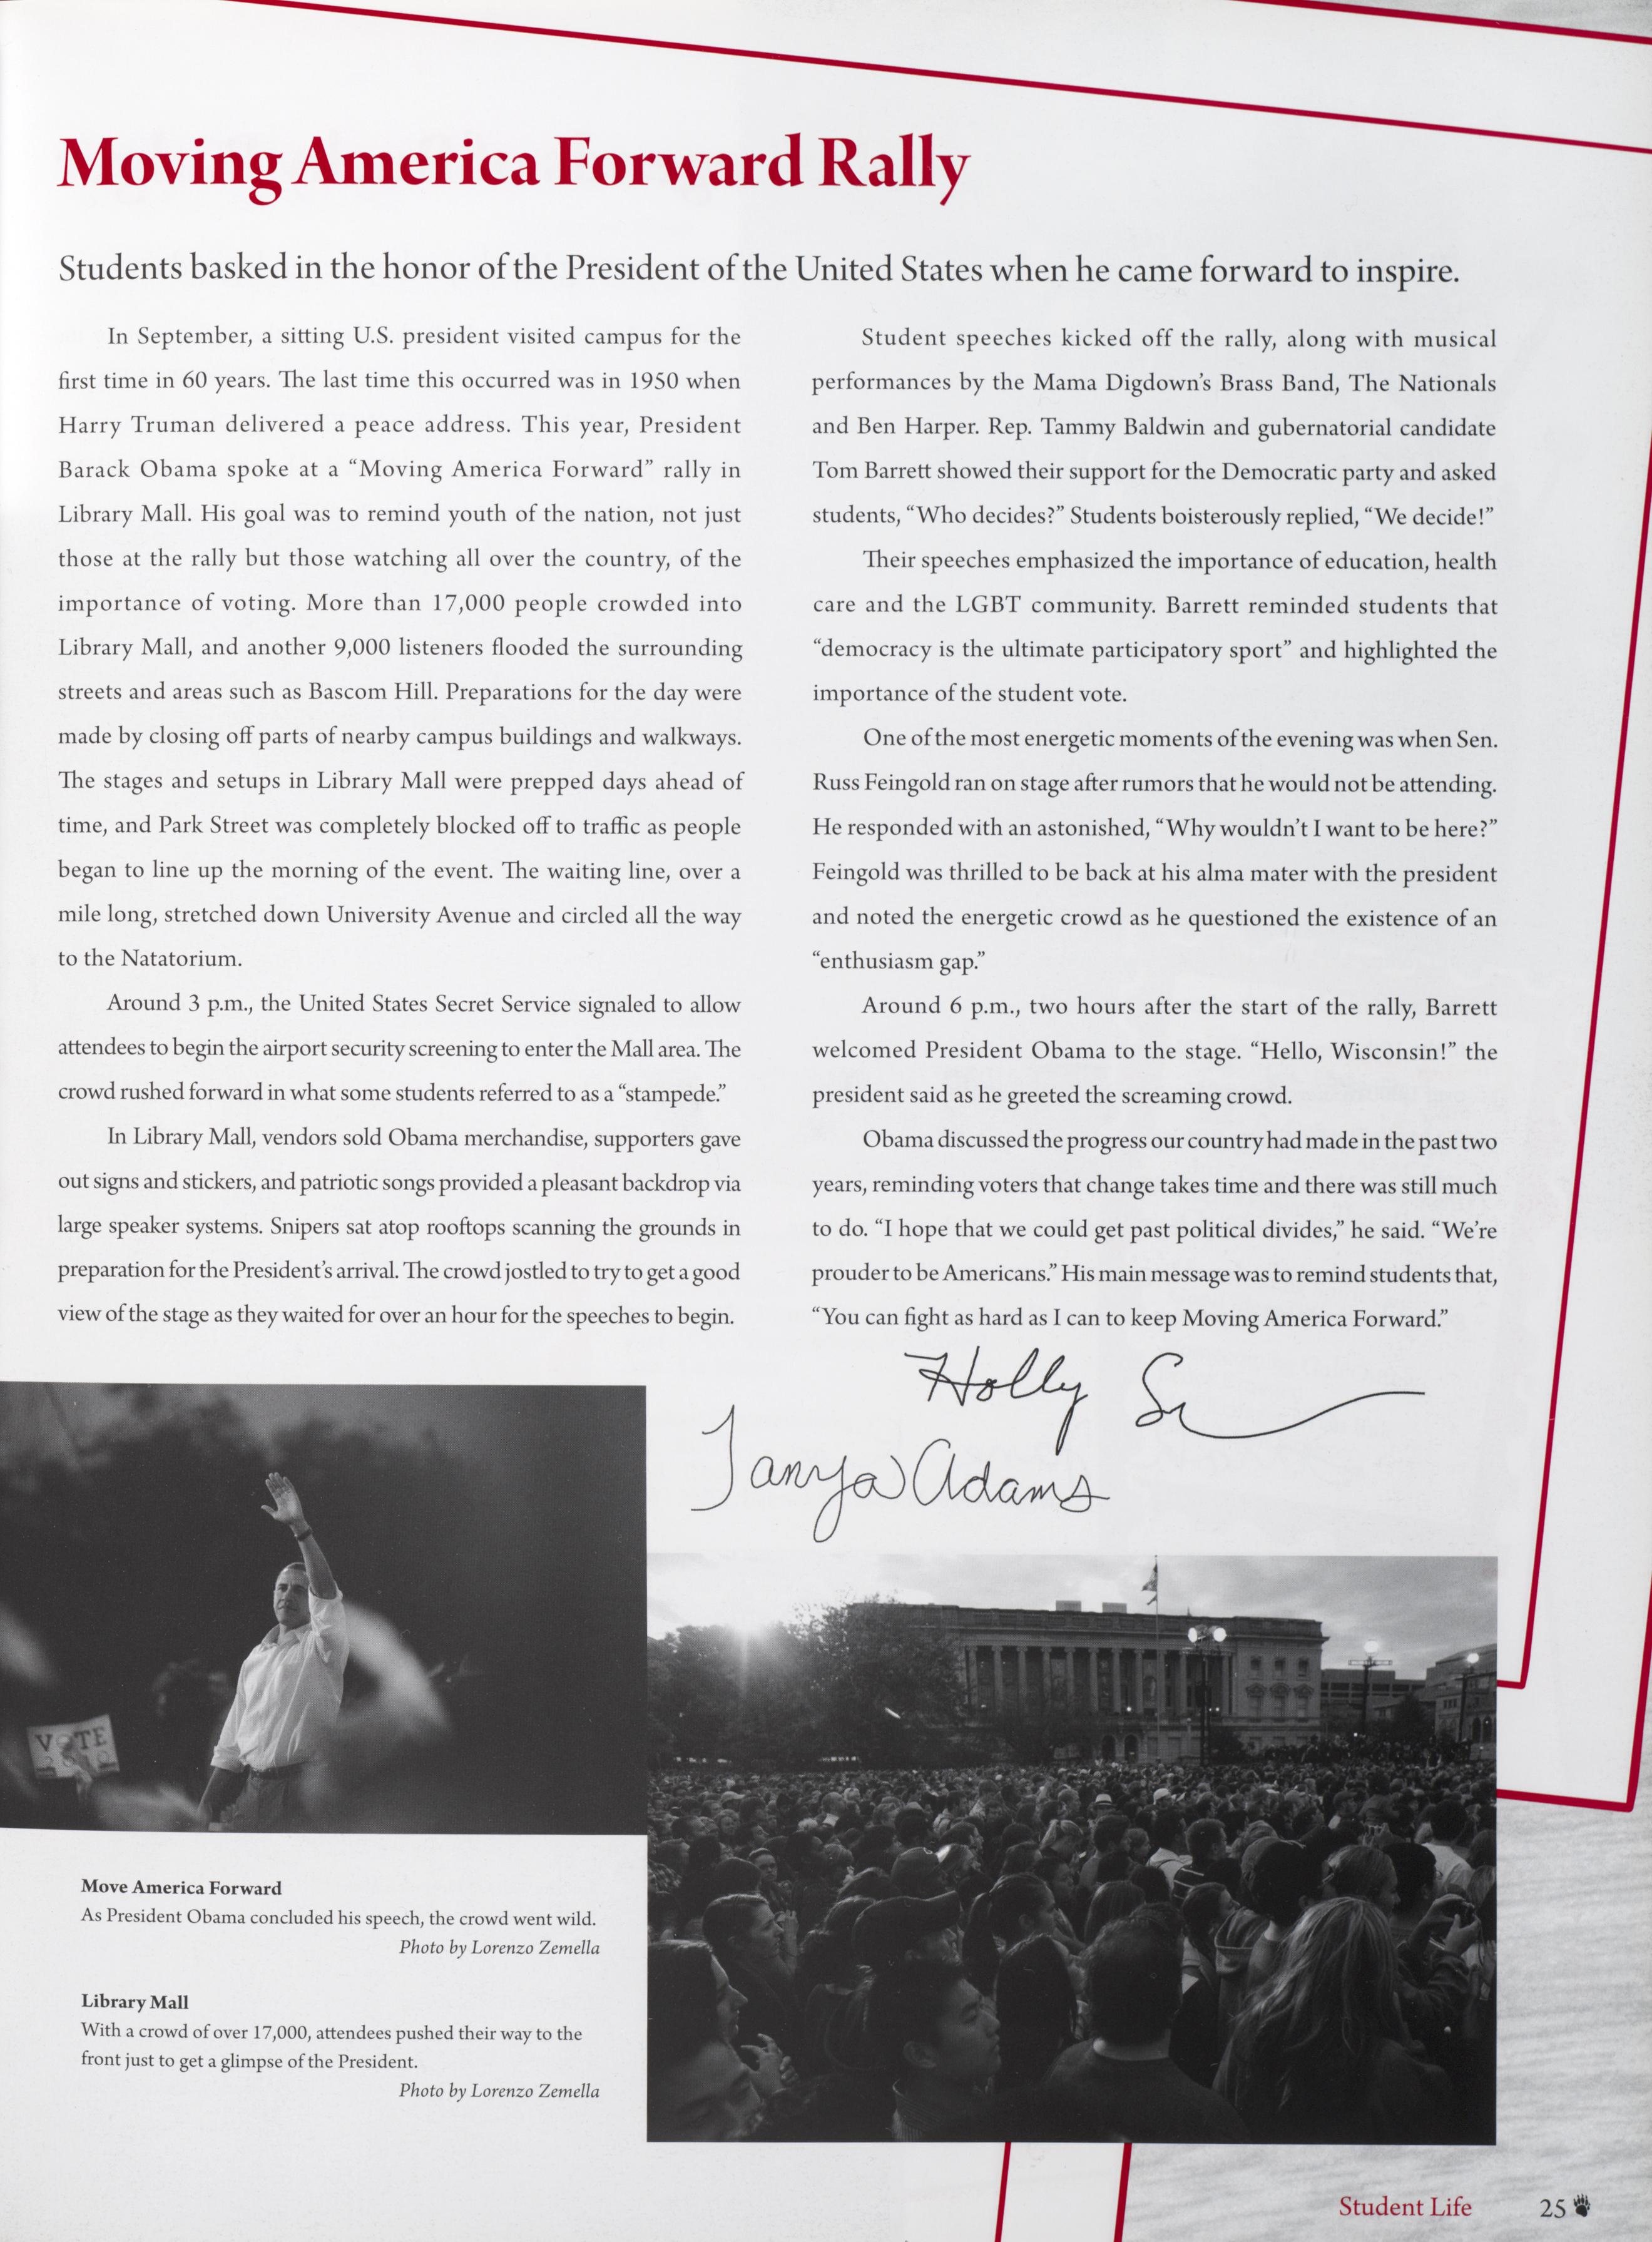 Moving America Forward Rally
Students basked in the honor of the President of the United States when he came forward to inspire.
In September, a sitting U.S. president visited campus for the
first time in 60 years. The last time this occurred was in 1950 when
Harry Truman delivered a peace address. This year, President
Barack Obama spoke at a “Moving America Forward” rally in
Library Mall. His goal was to remind youth of the nation, not just
those at the rally but those watching all over the country, of the
importance of voting. More than 17,000 people crowded into
Library Mall, and another 9,000 listeners flooded the surrounding
streets and areas such as Bascom Hill. Preparations for the day were
made by closing off parts of nearby campus buildings and walkways.
The stages and setups in Library Mall were prepped days ahead of
time, and Park Street was completely blocked off to traffic as people
began to line up the morning of the event. The waiting line, over a
mile long, stretched down University Avenue and circled all the way
to the Natatorium.
Around 3 p.m., the United States Secret Service signaled to allow
attendees to begin the airport security screening to enter the Mall area. The
crowd rushed forward in what some students referred to as a “stampede.”
In Library Mall, vendors sold Obama merchandise, supporters gave
out signs and stickers, and patriotic songs provided a pleasant backdrop via
large speaker systems. Snipers sat atop rooftops scanning the grounds in
preparation for the President’s arrival. The crowd jostled to try to get a good
view of the stage as they waited for over an hour for the speeches to begin.
Student speeches kicked off the rally, along with musical
performances by the Mama Digdown’s Brass Band, The Nationals
and Ben Harper. Rep. Tammy Baldwin and gubernatorial candidate
Tom Barrett showed their support for the Democratic party and asked
students, “Who decides?” Students boisterously replied, “We decide!”
Their speeches emphasized the importance of education, health
care and the LGBT community. Barrett reminded students that
“democracy is the ultimate participatory sport” and highlighted the
importance of the student vote.
One of the most energetic moments of the evening was when Sen.
Russ Feingold ran on stage after rumors that he would not be attending.
He responded with an astonished, “Why wouldn’t I want to be here?”
Feingold was thrilled to be back at his alma mater with the president
and noted the energetic crowd as he questioned the existence of an
“enthusiasm gap.”
Around 6 p.m., two hours after the start of the rally, Barrett
welcomed President Obama to the stage. “Hello, Wisconsin!” the
president said as he greeted the screaming crowd.
Obama discussed the progress our country had made in the past two
years, reminding voters that change takes time and there was still much
to do. “I hope that we could get past political divides,” he said. “We’re
prouder to be Americans.” His main message was to remind students that,
“You can fight as hard as I can to keep Moving America Forward.”
Holly
Tanya Adams
VOTE
2010
Move America Forward
As President Obama concluded his speech, the crowd went wild.
Photo by Lorenzo Zemella
Library Mall
With a crowd of over 17,000, attendees pushed their way to the
front just to get a glimpse of the President.
Photo by Lorenzo Zemella
Student Life 25